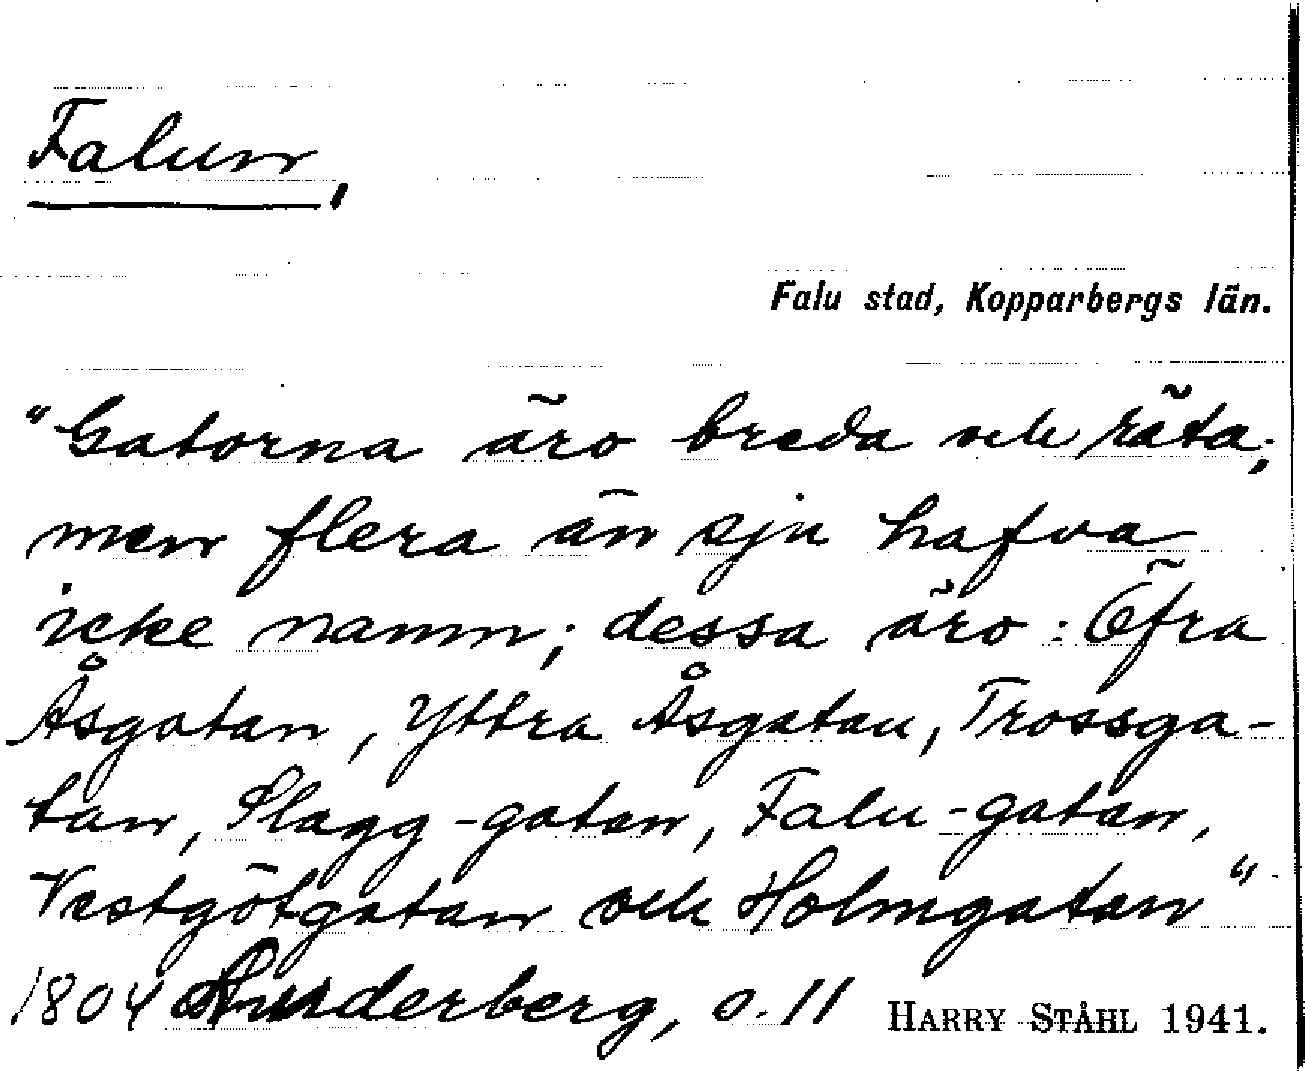 Falun,
Falu stad, Kopparbergs län.
"Gatorna äro breda och räta;
men flera än sju hafva
icke namn; dessa äro: Öfra
Åsgatan, Yttra Åsgatan, Trossga-
tan, Slagg-gatan, Falu-gatan,
Vestgötgatan och Holmgatan"
1804 s. 11
HARRY STÅHL 1941.